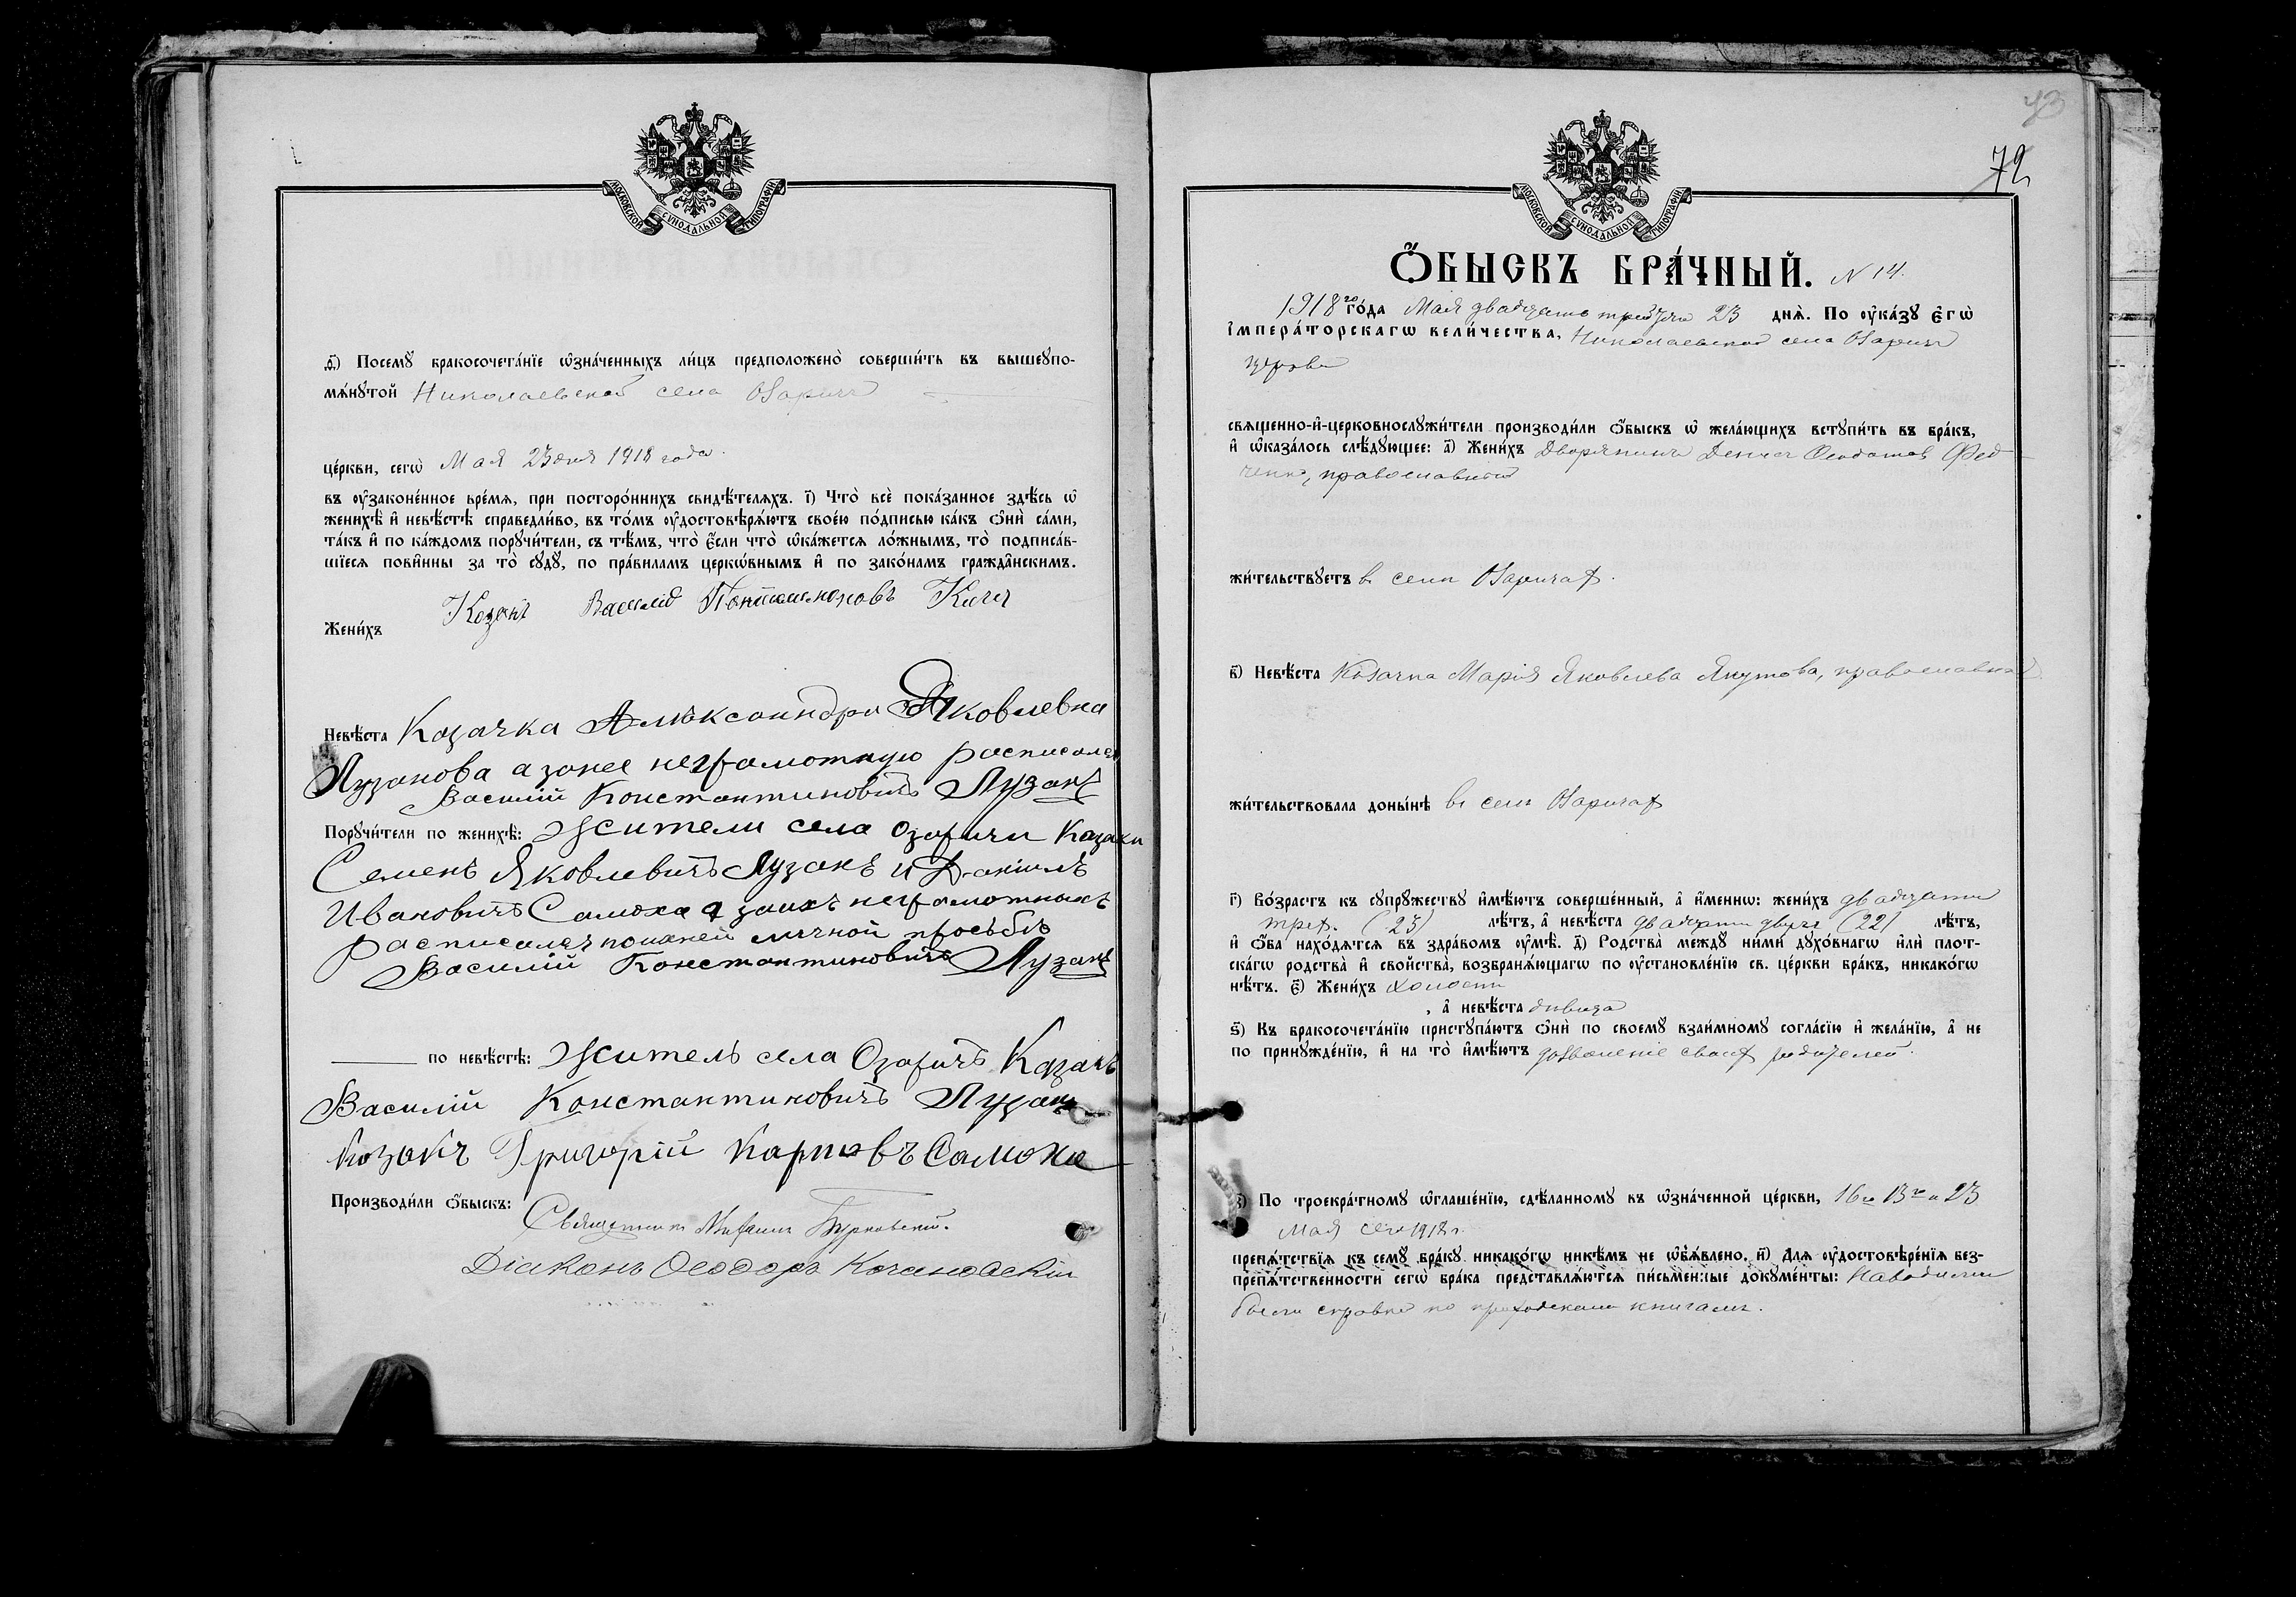 МОСКОВСКОЙ СѴНОДАЛЬНОЙ ТИПОГРАФІИ
ѳ҃) Посемꙋ бракосочета́нїе ѡ҆зна́ченныхъ ли́цъ предположено̀ соверши́ть въ вышеꙋпо-
мѧ́нꙋтой Николаевской села Озаричъ
це́ркви, сегѡ̀ Мая 23 дня 1918 года.
въ ѹ҆законе́нное вре́мѧ, при посторо́ннихъ свидѣ́телѧхъ. і҃) Что̀ всѐ пока́занное здѣ́сь ѡ҆
женихѣ̀ и҆ невѣ́стѣ справедли́во, въ то́мъ ѹ҆достовѣрѧ́ютъ свое́ю по́дписью ка́къ ѻ҆нѝ са́ми,
та́къ и҆ по ка́ждомъ порꙋчи́тели, съ тѣ́мъ, что̀ є҆́сли что̀ ѡ҆ка́жется ло́жнымъ, то̀ подписа́в-
шїесѧ пови́нны за то̀ сꙋдꙋ̀, по пра́виламъ церкѡ́внымъ и҆ по зако́намъ гражда̂нскимъ.
Жени́хъ Козакъ Василій Пантелимоновъ
Невѣ́ста Козачка Алѣксандра Яковлевна
Лузанова а занее неграмотную росписался
Василій Константиновичъ Лузанъ
Порꙋчи́тели по женихѣ̀: Жители села Озаричи Казаки
Семенъ Яковлевичъ Лузанъ и Даніилъ
Ивановичъ Самоха а заихъ неграмотныхъ
Росписался поихней личной просьбѣ
Василий Константиновичъ Лузанъ
по невѣ́стѣ: Житель села Озаричъ Казакъ
Василій Константиновичъ Лузанъ
Козакъ Григорій Карповъ Самоха
Производи́ли ѻ҆́быскъ: Священникъ Михаилъ
Діаконъ Ѳеодоръ Качановскій
72
МОСКОВСКОЙ СѴНОДАЛЬНОЙ ТИПОГРАФІИ
Ѻ҆́БЫСКЪ БРА́ЧНЫЙ. N 14.
1918 го го́да Мая двадцать третьяго 23 днѧ̀. По ѹ҆ка́зꙋ є҆гѡ̀
і҆мпера́торскагѡ вели́чества, Николаевской села Озаричъ
церкви
свѧще́нно-и҆-церковнослꙋжи́тели производи́ли ѻ҆́быскъ ѡ҆ жела́ющихъ встꙋпи́ть въ бра́къ,
и҆ ѡ҆каза́лось слѣ́дꙋющее: а҃) Жени́хъ Дворянинъ Денисъ Ѳеодотовъ Фед-
ченко, православный
жи́тельствꙋетъ въ селѣ Озаричахъ.
в҃) Невѣ́ста Козачка Марія Яковлева Якутова, православная
жи́тельствовала доны́нѣ въ селѣ Озаричахъ
г҃) Во́зрастъ къ сꙋпрꙋ́жествꙋ и҆мѣ́ютъ соверше́нный, а҆ и҆́меннѡ: жени́хъ двадцати
трехъ (23) лѣ́тъ, а҆ невѣ́ста двадцати двухъ (22) лѣ́тъ,
и҆ ѻ҆́ба нахо́дѧтсѧ въ здра́вомъ ѹ҆мѣ̀. д҃) Родства̀ междꙋ ни́ми дꙋхо́внагѡ и҆лѝ плот-
ска́гѡ родства̀ и҆ сво́йства̀, возбранѧ́ющагѡ по ѹ҆становле́нїю св. це́ркви бра́къ, никако́гѡ
нѣ́тъ. є҃) Жени́хъ холостъ
, а҆ невѣ́ста дѣвица
ѕ҃) Къ бракосочета́нїю пристꙋпа́ютъ ѻ҆нѝ по своемꙋ̀ взаи́мномꙋ согла́сїю и҆ жела́нїю, а҆ не
по принꙋжде́нїю, и҆ на то̀ и҆мѣ́ютъ дозволеніе своихъ родителей.
По троекра́тномꙋ ѡ҆глаше́нїю, сдѣ́ланномꙋ въ ѡ҆зна́ченной це́ркви, 16 го 13 го и 23
мая сего 1918 г.
препѧ́тствїѧ къ семꙋ̀ бра́кꙋ никако́гѡ никѣ́мъ не ѡ҆б̾ѧ́влено. и҃) Длѧ ѹ҆достовѣре́нїѧ без-
препѧ́тственности сегѡ̀ бра́ка представлѧ́ютсѧ пи́сьменные докꙋме́нты: Наводились
были справки по приходскимъ книгамъ.